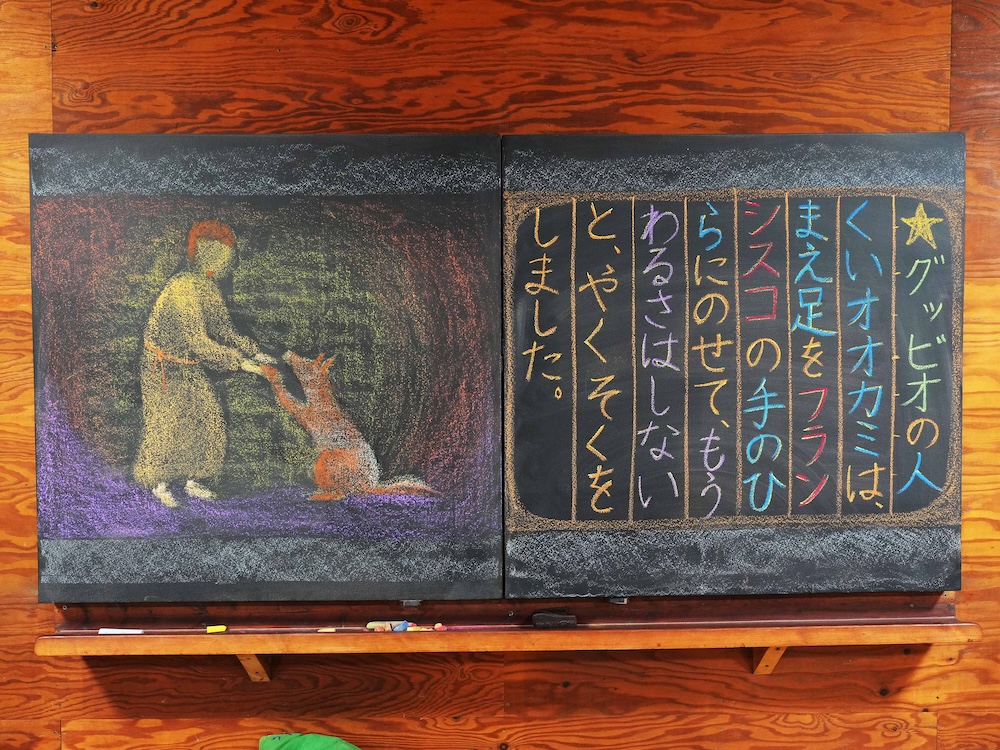 ★グッビオの人
くいオオカミは、
まえ足をフラン
シスコの手のひ
らにのせて、もう
わるさはしない
と、やくそくを
しました。